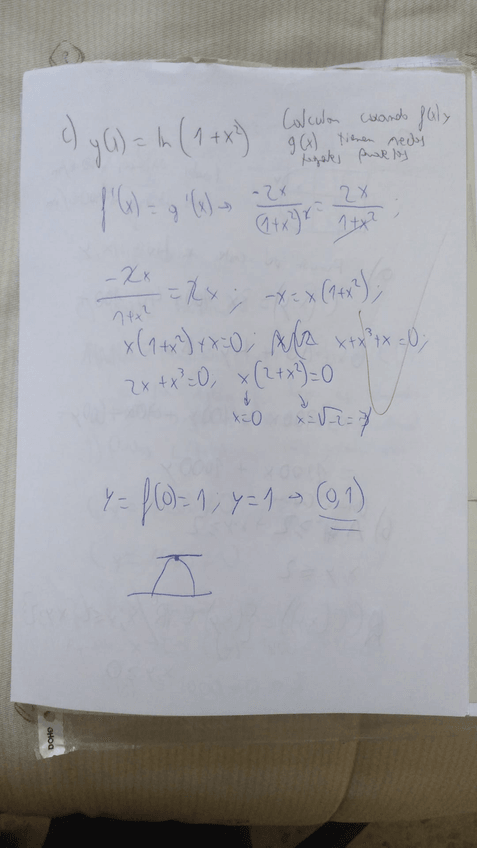 c) y(x) = ln(1+x²) Calcular cuando f(x) y
g(x) tienen rectas
iguales
f'(x) = g'(x) → -2x/(1+x²)² = 2x/1+x² ;
-2x/1+x² = 2x ; -x = x(1+x²);
x(1+x²)+x=0; x+x³+x=0;
2x+x³=0, x(2+x²)=0
↓ ↓
x=0 x=√-2=∄
y = f(0)=1, y=1 → (0,1)
DOHO